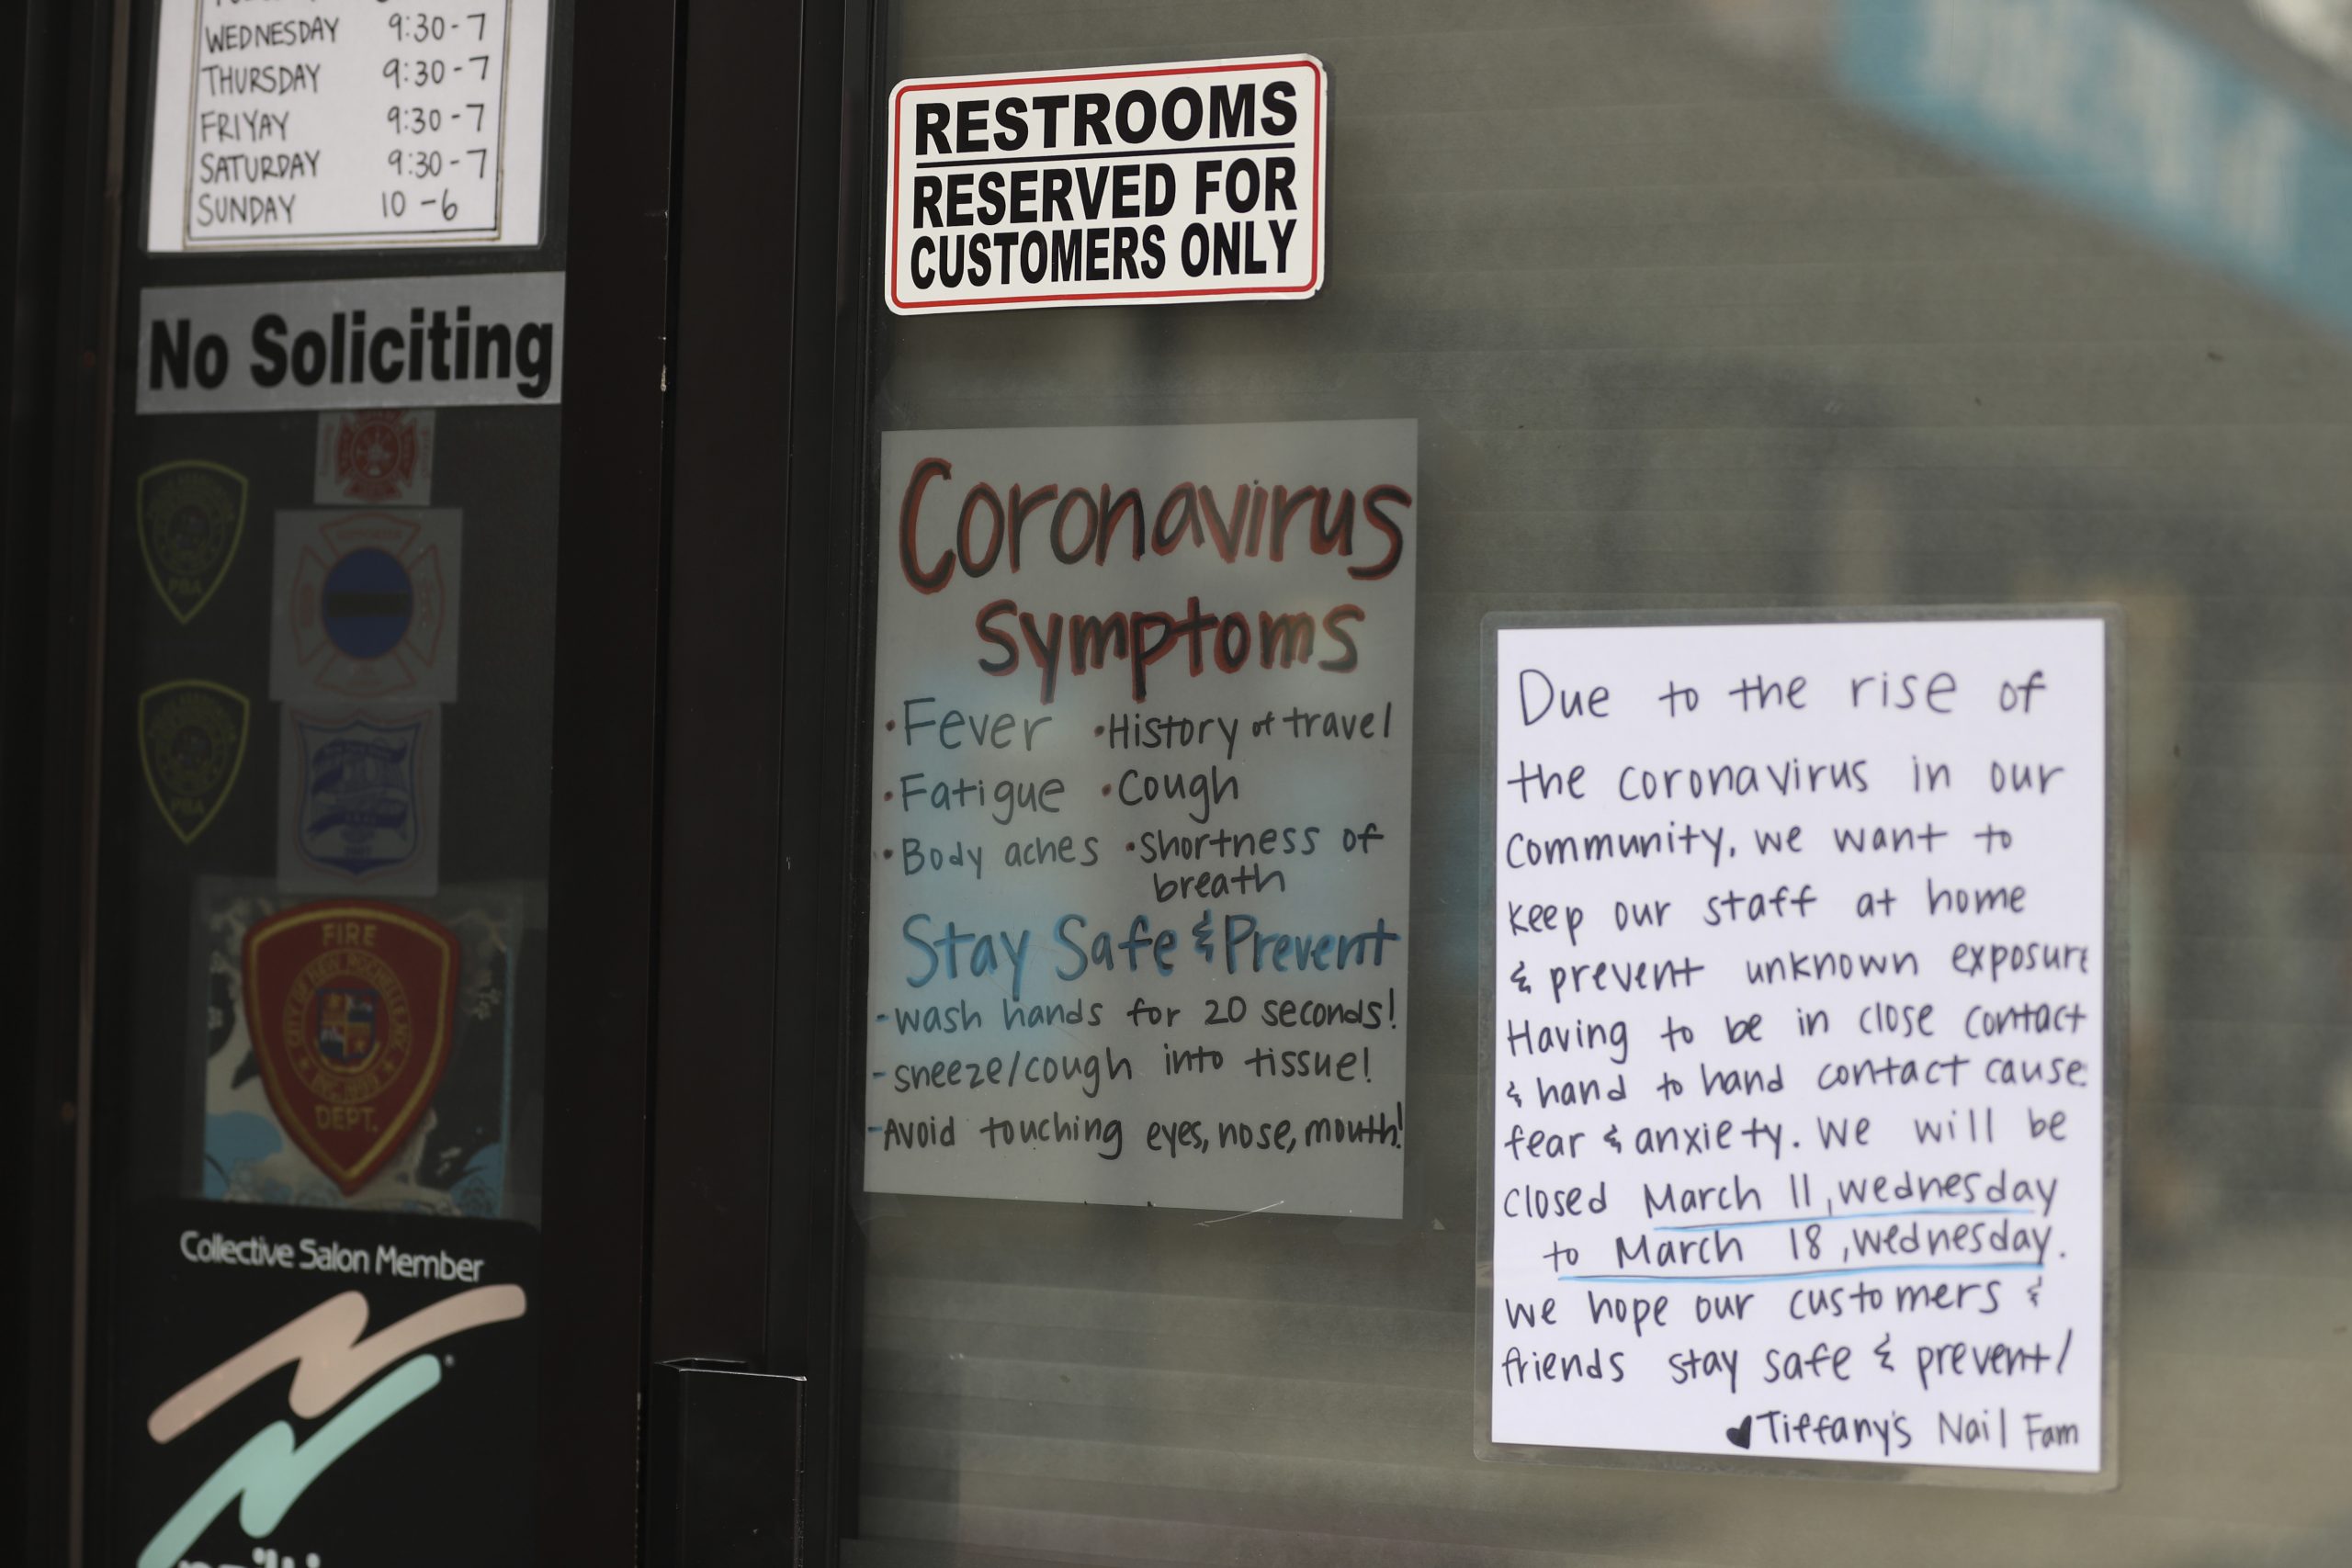 WEDNESDAY 9:30-7
THURSDAY 9:30-7
FRIYAY 9:30-7
SATURDAY 9:30-7
SUNDAY 10-6
No Soliciting
PBA
PBA
FIRE
CITY OF NEW ROCHELLE, N.Y.
DEPT.
Collective Salon Member
RESTROOMS
RESERVED FOR
CUSTOMERS ONLY
Coronavirus
Symptoms
• Fever • History of travel
• Fatigue • Cough
• Body aches • Shortness of
breath
Stay Safe & Prevent
- wash hands for 20 seconds!
- sneeze/cough into tissue!
- Avoid touching eyes, nose, mouth!
Due to the rise of
the coronavirus in our
community, we want to
keep our staff at home
& prevent unknown exposure
Having to be in close contact
& hand to hand contact cause
fear & anxiety. We will be
closed March 11, wednesday
to March 18, wednesday.
we hope our customers &
friends stay safe & prevent!
♥ Tiffany's Nail Fam